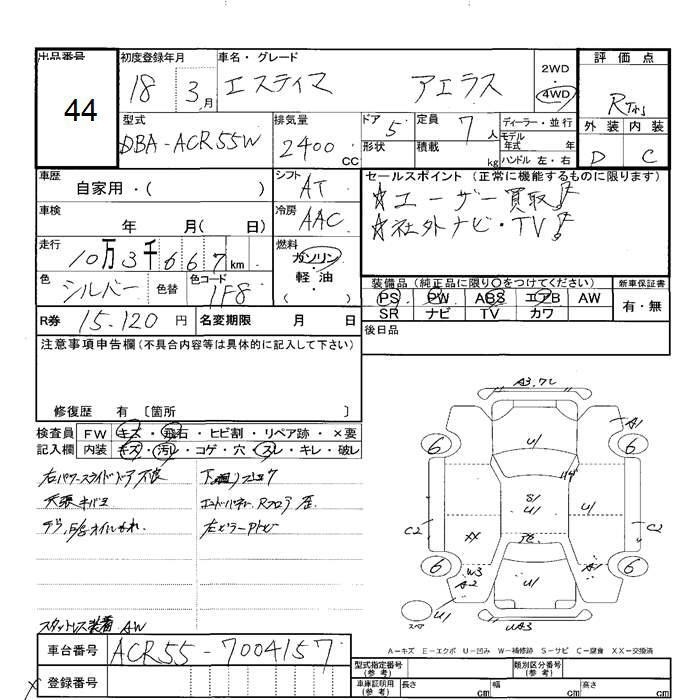 出品番号 44
初度登録年月 18 3月
車名・グレード エスティマ アエラス
2WD
4WD
評価点
外装 内装
D C
型式 DBA-ACR55W
排気量 2400CC
ドア 5
形状
定員 7人
積載 kg
ディーラー・並行
モデル年式 年
ハンドル 左・右
車歴 自家用・( )
シフト AT
セールスポイント (正常に機能するものに限ります)
☆ユーザー買取!
☆社外ナビ・TV!
車検 年 月( 日)
冷房 AAC
走行 10万3千667km
燃料 ガソリン・軽油
( )
色 シルバー 色替 色コード 1F8
装備品 (純正品に限り○をつけてください) 新車保証書
PS PW ABS エアB AW 有・無
SR ナビ TV カワ
R券 15.120円 名変期限 月 日
後日品
注意事項申告欄 (不具合内容等は具体的に記入して下さい)
修復歴 有 〔箇所 〕
検査員 FW キズ・飛石・ヒビ割・リペア跡・×要
記入欄 内装 キズ・汚レ・コゲ・穴・スレ・キレ・破レ
右パワースライドドア不良
スタットレス装着 AW
A3.
U1
A1
6
6
S1
U1
U1
C2
XX
C2
W3
A2
A1
6
6
U1
スペア
U1
UA3
A-キズ E-エクボ U-凹み W-補修跡 S-サビ C-腐食 XX-交換済
車台番号 ACR55-7004157
登録番号
型式指定番号(参考) 類別区分番号(参考)
車庫証明用(参考) 長さ cm 幅 cm 高さ cm